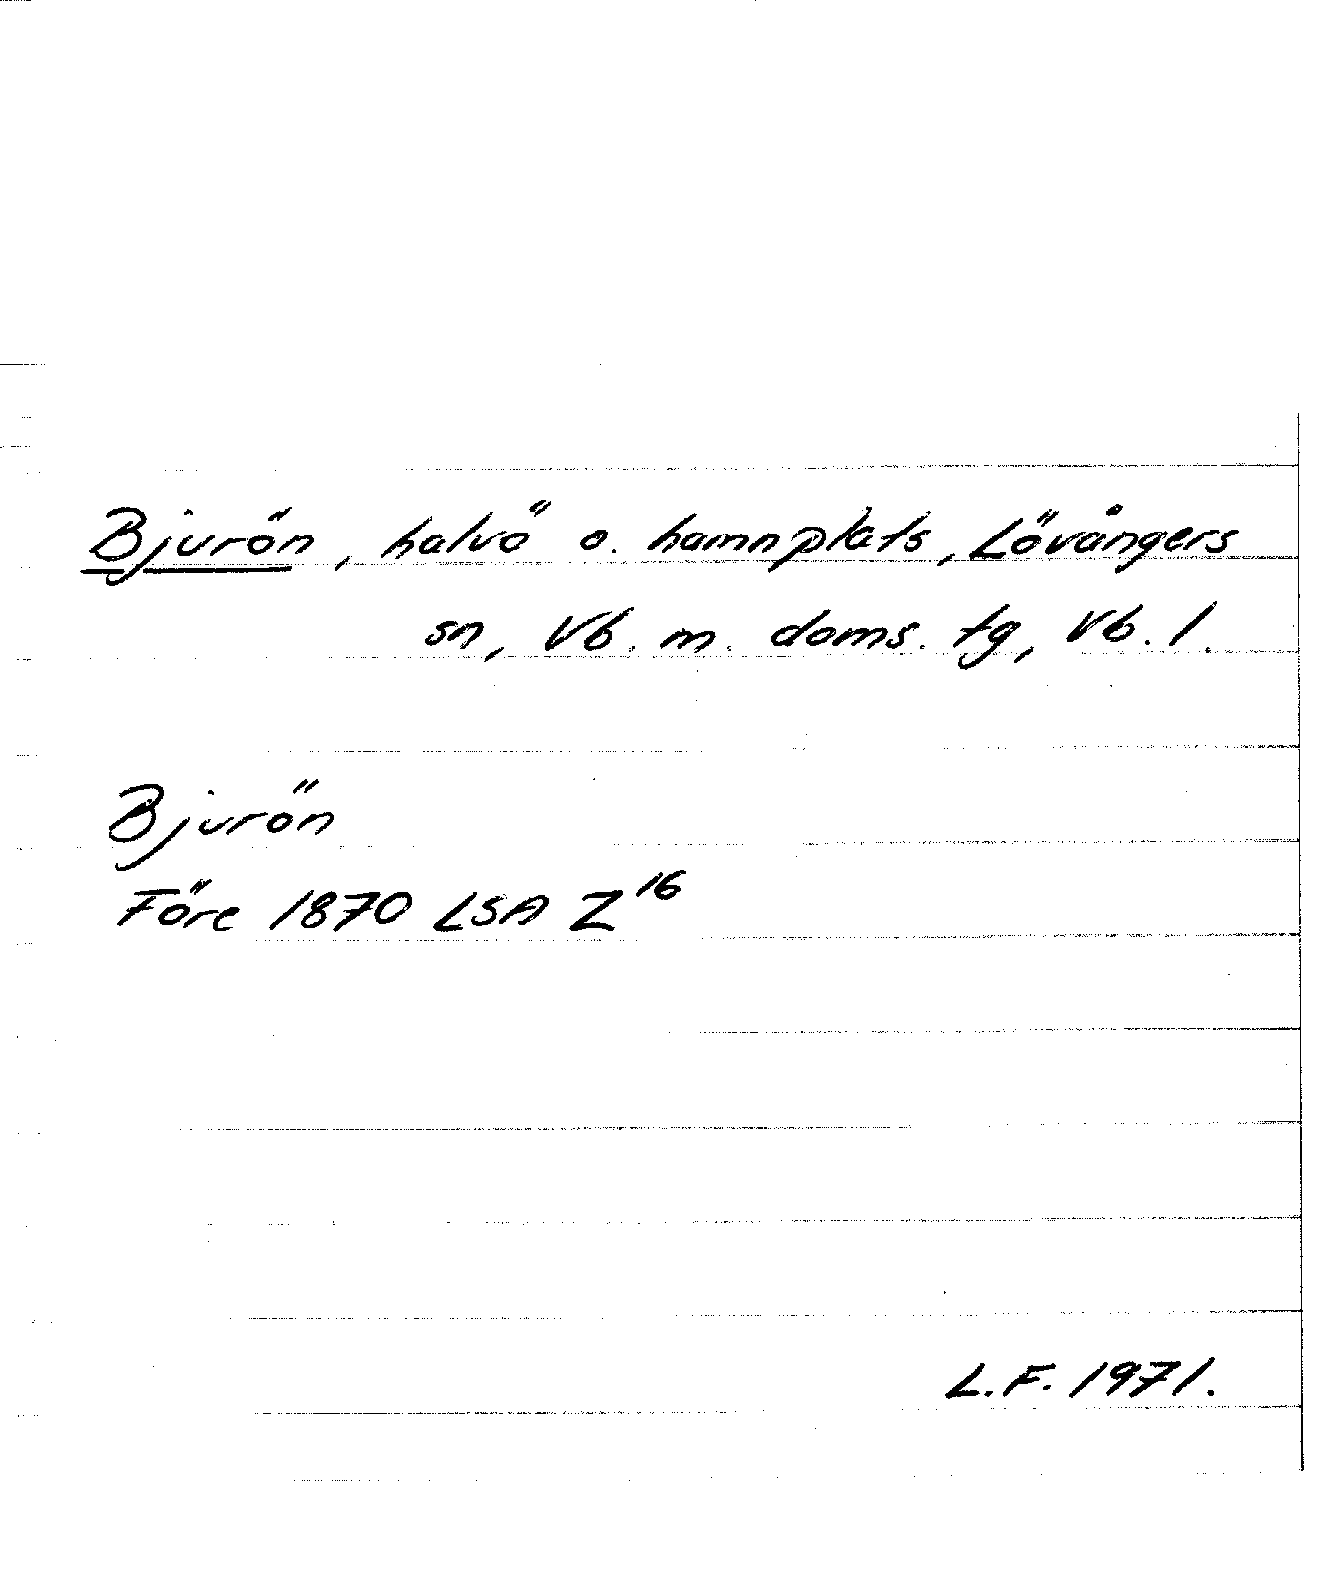 Bjurön, halvö o. hamnplats, Lövångers
sn, Vb. m. doms. tg, Vb. l.
Bjurön
Före 1870 LSA Z¹⁶
L.F. 1971.